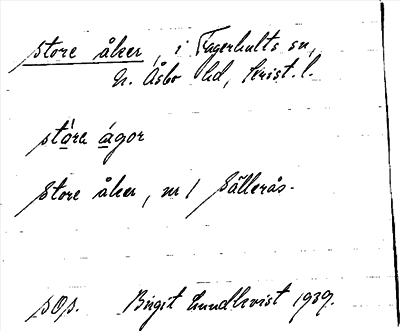 store åker, i Fagerhults sn,
N. Åsbo hd, Krist. l.
stára ágor
Store åker, nr 1 Sällerås.
sOs. Birgit Lundkvist 1939.